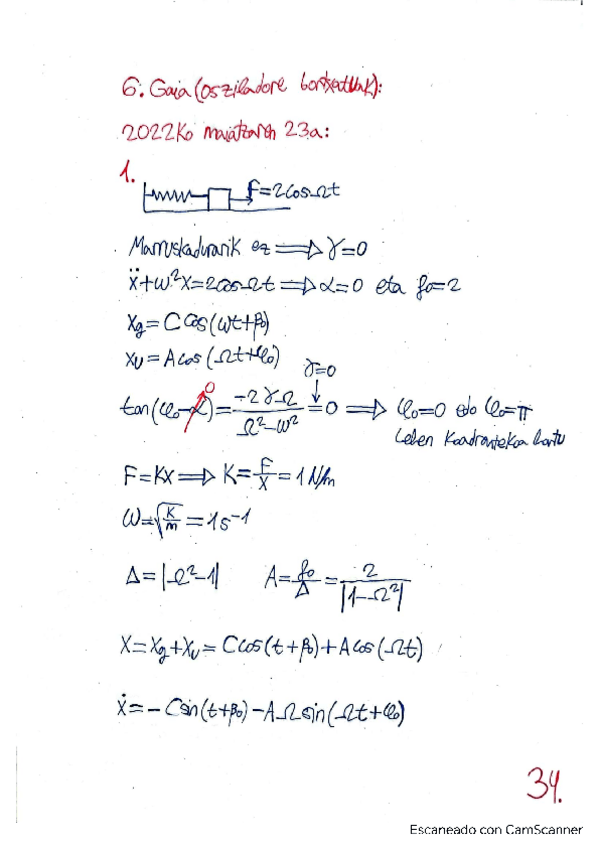 6. Gaia (osziladore bortxatuak):
2022ko maiatzaren 23a:
1.
f=2cosΩt
Marruskadurarik ez ⟹ γ=0
ẍ+ω²x=2cosΩt ⟹ α=0 eta f₀=2
x_g=C cos(ωt+β₀)
x_U=A cos(Ωt+φ₀)
γ=0
tan(φ₀-α)=(-2γΩ)/(Ω²-ω²)=0 ⟹ φ₀=0 edo φ₀=π
0
Lehen koadrantekoa hartu
F=Kx ⟹ K=F/x=1 N/m
ω=√(K/m)=1s⁻¹
Δ=|Ω²-1| A=f₀/Δ=2/|1-Ω²|
X=X_g+X_U=C cos(t+β₀)+A cos(Ωt)
ẋ=-C sin(t+β₀)-AΩ sin(Ωt+φ₀)
34.
Escaneado con CamScanner